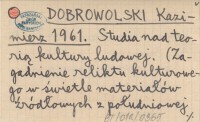 DOBROWOLSKI Kazi-
mierz 1961. Studia nad teo-
rią kultury ludowej. (Za-
gadnienie reliktu kulturowe-
go w świetle materiałów
źródłowych z południowej